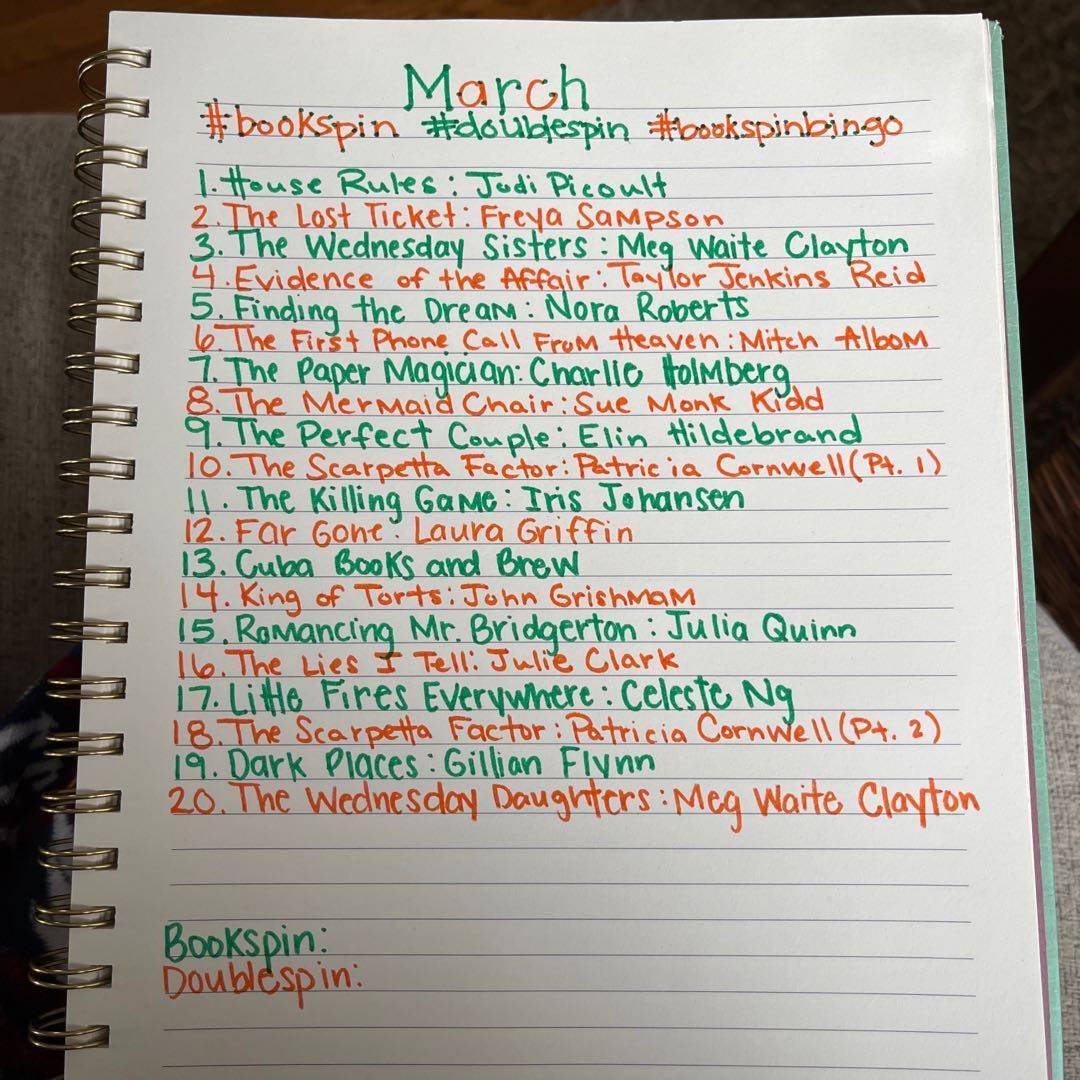 March
#bookspin #doublespin #bookspinbingo
1. House Rules: Jodi Picoult
2. The Lost Ticket: Freya Sampson
3. The Wednesday Sisters: Meg Waite Clayton
4. Evidence of the Affair: Taylor Jenkins Reid
5. Finding the Dream: Nora Roberts
6. The First Phone Call From Heaven: Mitch Albom
7. The Paper Magician: Charlie Holmberg
8. The Mermaid Chair: Sue Monk Kidd
9. The Perfect Couple: Elin Hildebrand
10. The Scarpetta Factor: Patricia Cornwell (Pt. 1)
11. The Killing Game: Iris Johansen
12. Far Gone: Laura Griffin
13. Cuba Books and Brew
14. King of Torts: John Grishmam
15. Romancing Mr. Bridgerton: Julia Quinn
16. The Lies I Tell: Julie Clark
17. Little Fires Everywhere: Celeste Ng
18. The Scarpetta Factor: Patricia Cornwell (Pt. 2)
19. Dark Places: Gillian Flynn
20. The Wednesday Daughters: Meg Waite Clayton
Bookspin:
Doublespin: